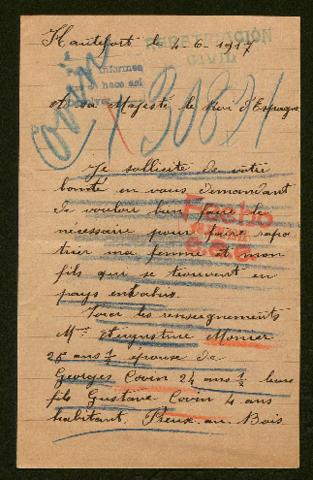 Hautefort le 4-6-1917
REPATRIACIÓN
CIVIL
informes
hace así
A sa Majesté le Roi d'Espagne
X 30871
Je sollicite de votre
bonté en vous demandant
de vouloir bien faire le
nécessaire pour faire rapa
trier ma femme et mon
fils qui se trouvent en
pays envahis.
Fecho
Voici les renseignements
Mme Augustine Monier
25 ans ½ épouse de
Georges Covin 24 ans ½ leurs
fils Gustave Covin 4 ans
habitant, Preux-au-Bois